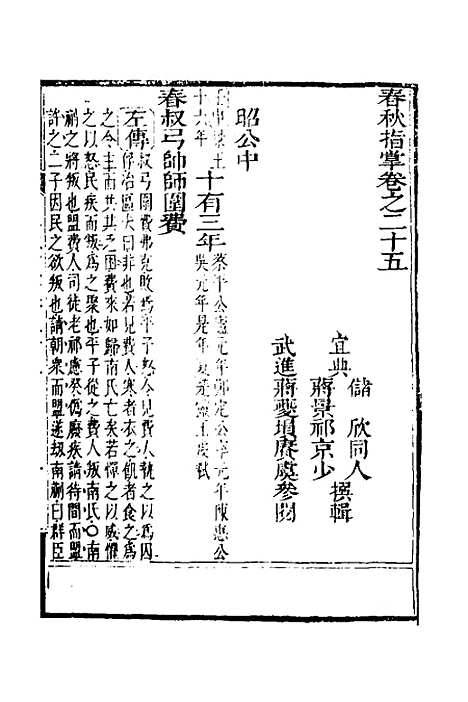 春秋指掌卷之二十五
宜興 儲欣同人
蔣景祁京少 撰輯
武進蔣夔塤賡處參閱
昭公中
十有三年 蔡平公廬元年鄭定公寧元年陳惠公
十六年 吳元年是年楚靈王虔弒
春叔弓帥師圍費
左傳 叔弓圍費弗克敗焉平子怒令見費人執之以爲囚
俘冶區夫曰非也若見費人寒者衣之飢者食之爲
之令主而共其乏困費來如歸南氏亡矣若憚之以威懼
之以怒民疾而叛爲之聚也平子從之費人叛南氏〇南
蒯之將叛也盟費人司徒老祁慮癸僞廢疾請待間而盟
許之二子因民之欲叛也請朝衆而盟遂刼南蒯曰群臣